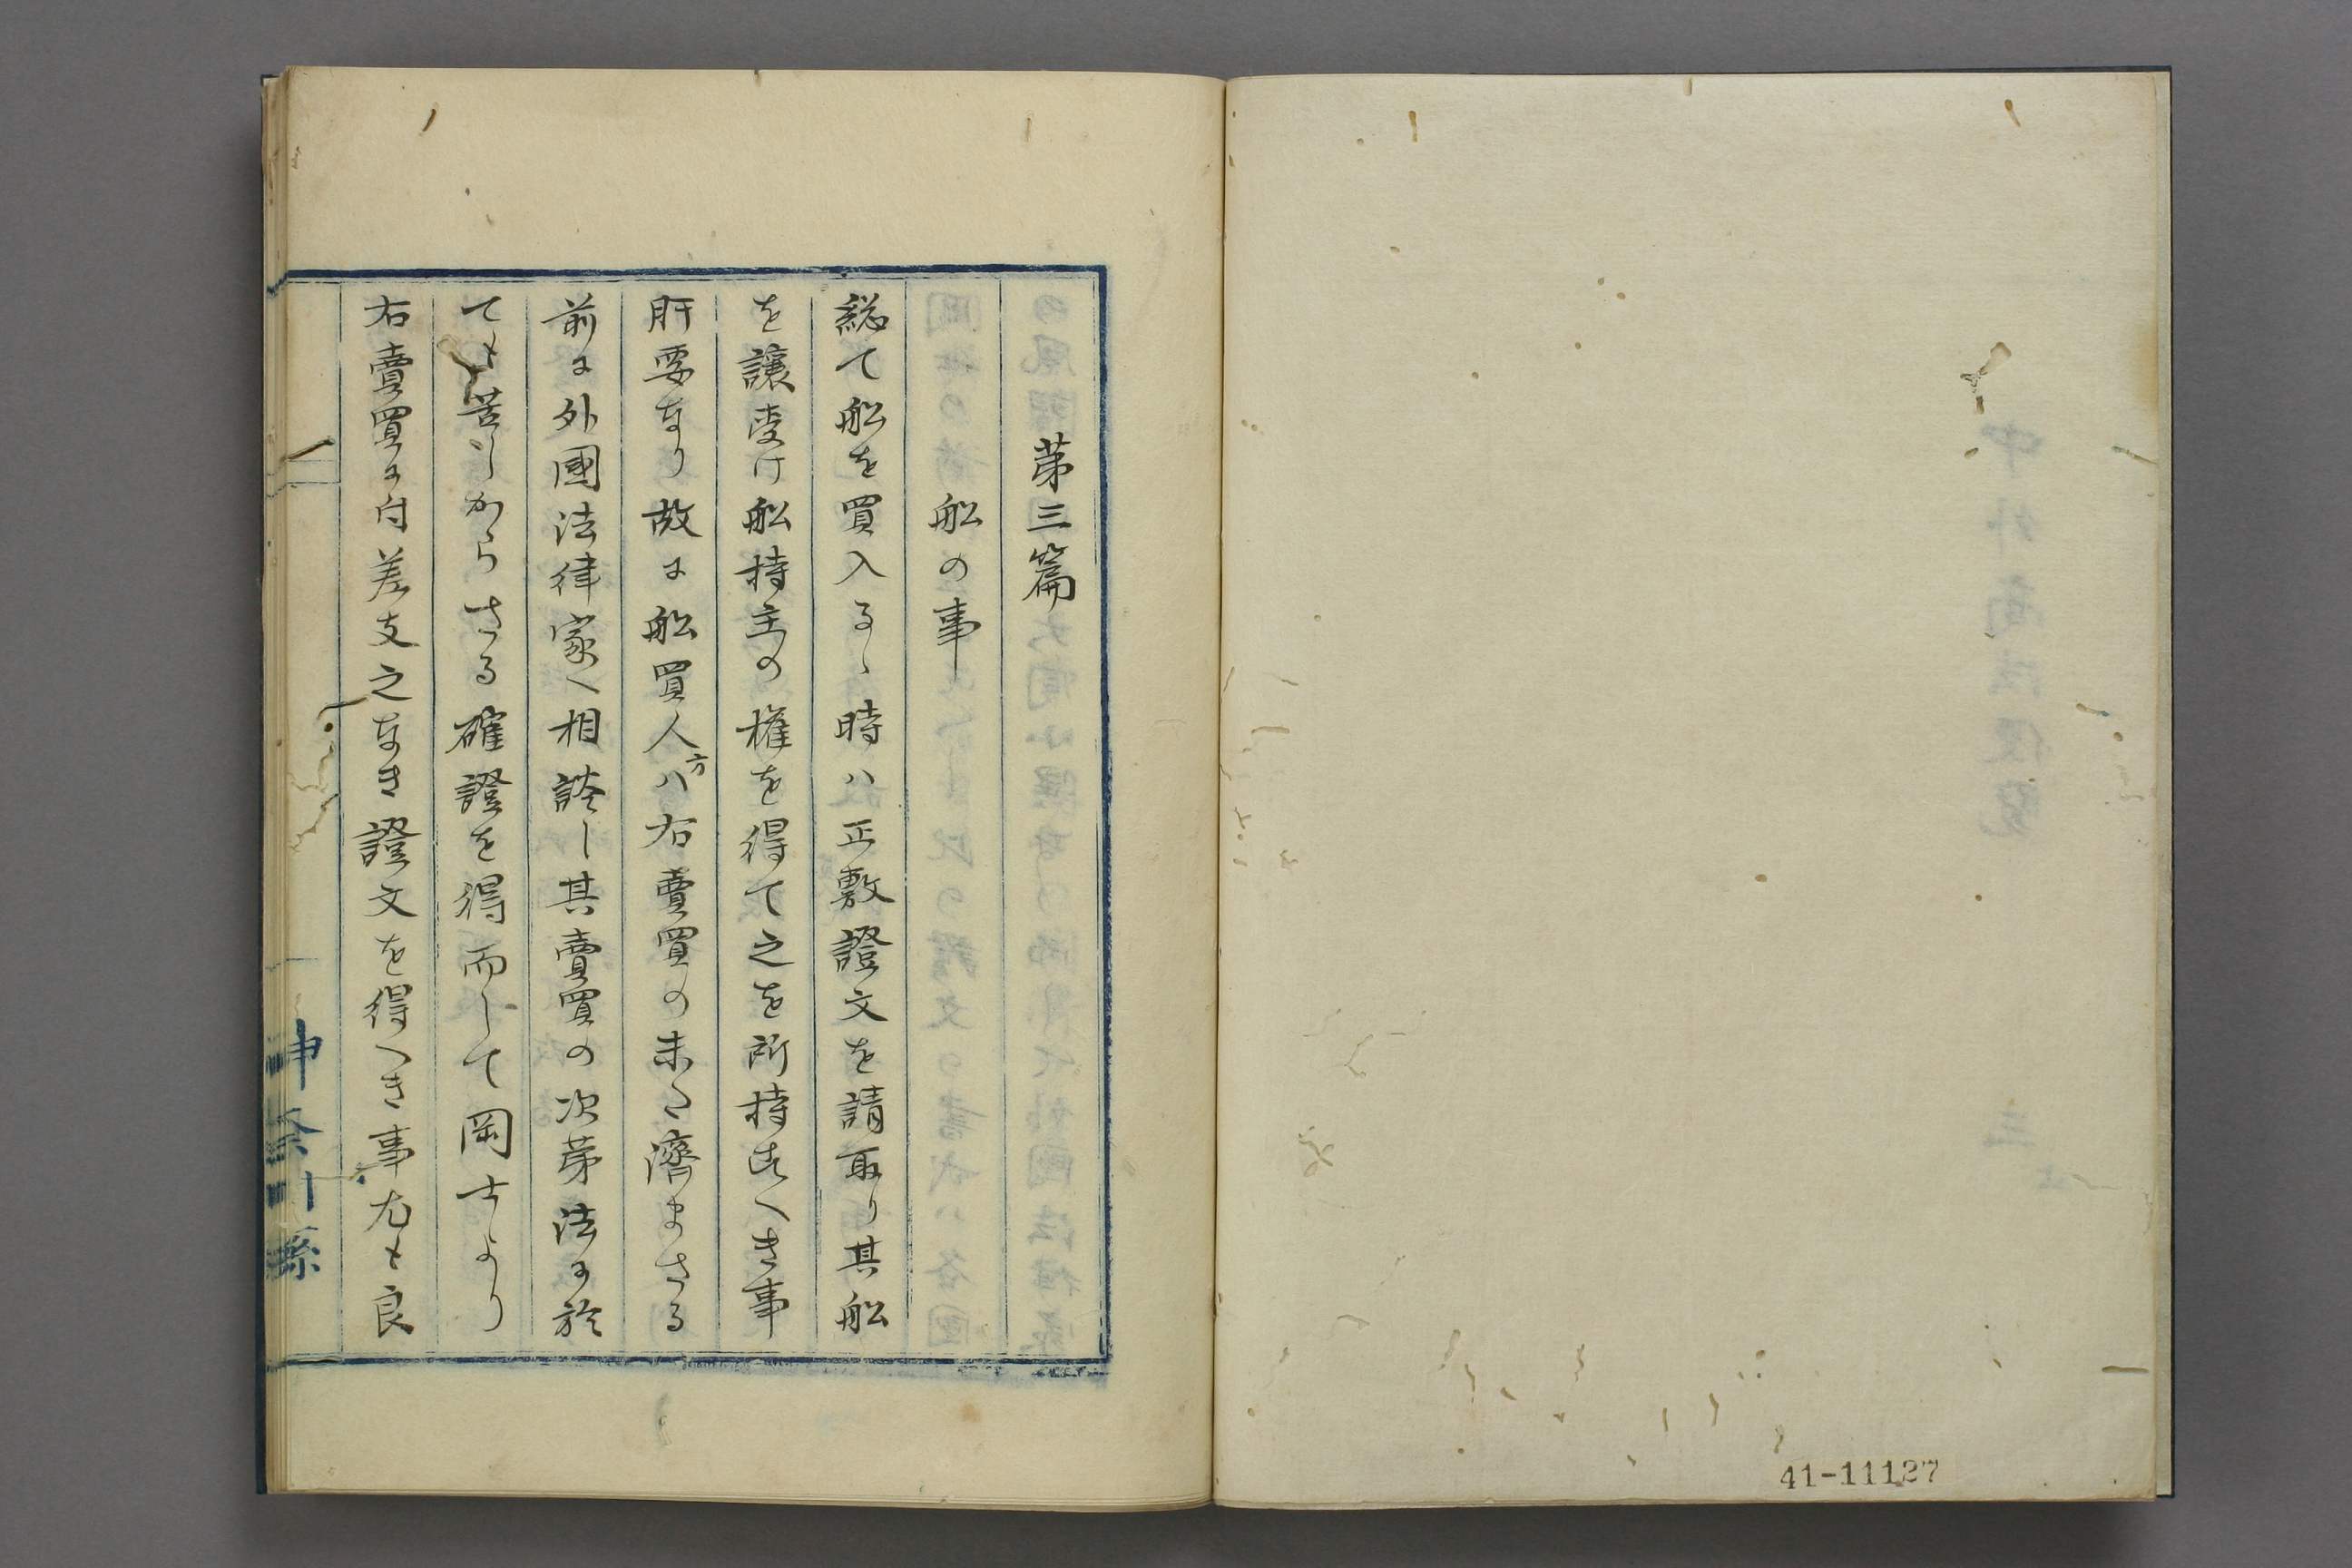 第三篇
船の事
総て船を買入るゝ時ハ正敷證文を請取り其船
を譲受け船持主の権を得て之を所持すへき事
肝要なり故に船買人方ハ右賣買の未た濟まさる
前に外國法律家へ相談し其賣買の次第法に於
ても苦しからさる確證を得而して岡士より
右賣買に付差支之なき證文を得へき事尤も良
神奈川縣
41-11127